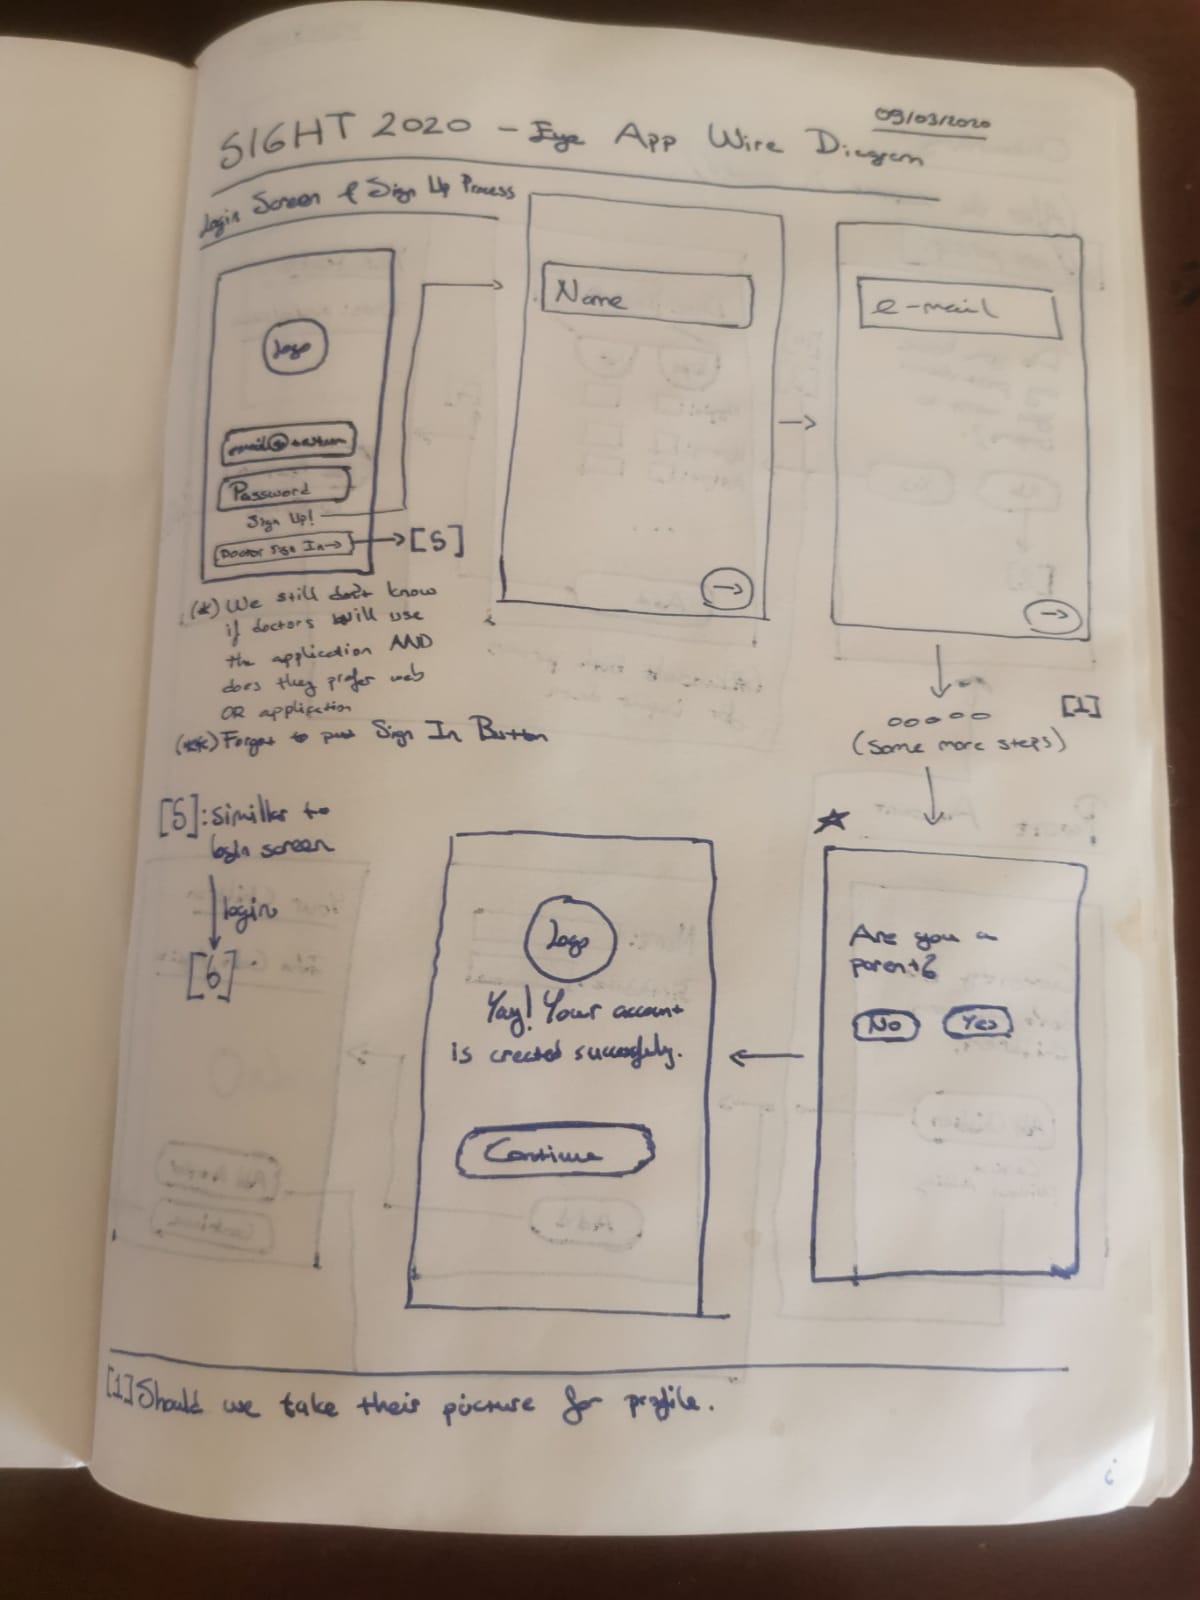 09/03/2020
SIGHT 2020 - Eye App Wire Diagram
Login Screen & Sign Up Process
Logo
Password
Sign Up!
Doctor Sign In →
[5]
Name
→
e-mail
→
(*) We still don't know
if doctors will use
the application AND
does they prefer web
OR application
(**) Forgot to put Sign In Button
[1]
(some more steps)
[5]: similar to
login screen
login
[6]
Logo
Yay! Your account
is created successfuly.
Continue
Are you a
parent?
No Yes
[1] Should we take their picture for profile.